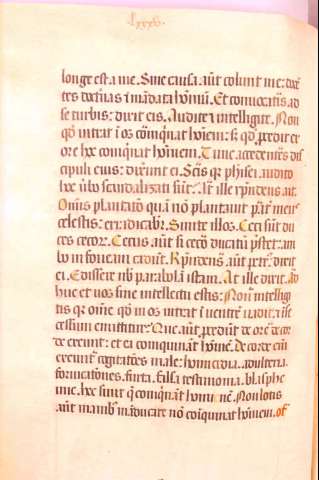 lxxxv.
longe est a me. Sine causa aūt colunt me: docē
tes doctrinas ⁊ mādata hōinū. Et convocatis ad
se turbis: dixit eis. Audite ⁊ intelligite. Non
qð intrat ī os coinqnat hoīem: sꝫ qð procedit ex
ore hoc coinqnat hoīnem. Tunc accedentes dis
cipuli eius: dixerunt ei. Scis qꝛ pharisei audito
hoc ūbo scandalizati sūt. At ille rn̄dens ait.
Omīs plantatio quā nō plantauit pat̄ meus
celestis: eradicabit̄. Sinite illos. Ceci sūt du
ces cecoꝝ. Cecus aūt si ceco ducatū p̄stet: am
bo in foueam cadūt. Rn̄dens aūt petr̄: dixit
ei. Edissere nob̄ parabolā istam. At ille dixit. Ad
huc et uos sine intellectu estis: Non intelligi
tis qꝛ omē qð in os intrat ī uentrē uadit ⁊ ī se
cessum emittitur: Que aūt procedūt de ore de cor
de exeunt: et ea coinquinant hoīnē. De corde eī
exeunt cogitatōes male: homicidia. adulteria.
fornicatōnes. furta. falsa testimonia. blasphe
mie. hec sunt q̄ coinqnāt hominē. Non lotis
aūt manibꝫ māducare nō coīquinat hoīnem. Of